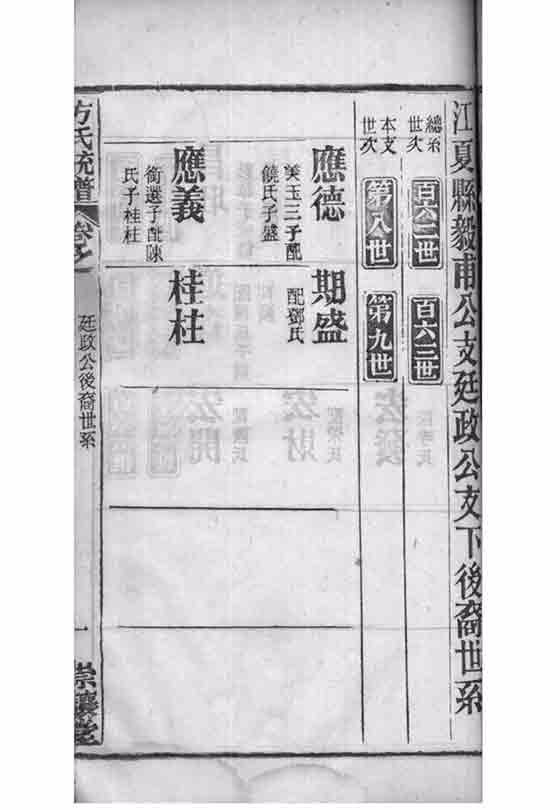 江夏縣毅甫公支廷政公支下後裔世系
總系世次
百六二世
百六三世
本支世次
第八世
第九世
應德
美玉三子配
饒氏子盛
期盛
配鄧氏
應義
衛選子配陳
氏子桂柱
桂柱
方氏統譜
廷政公後裔世系
一
崇讓堂